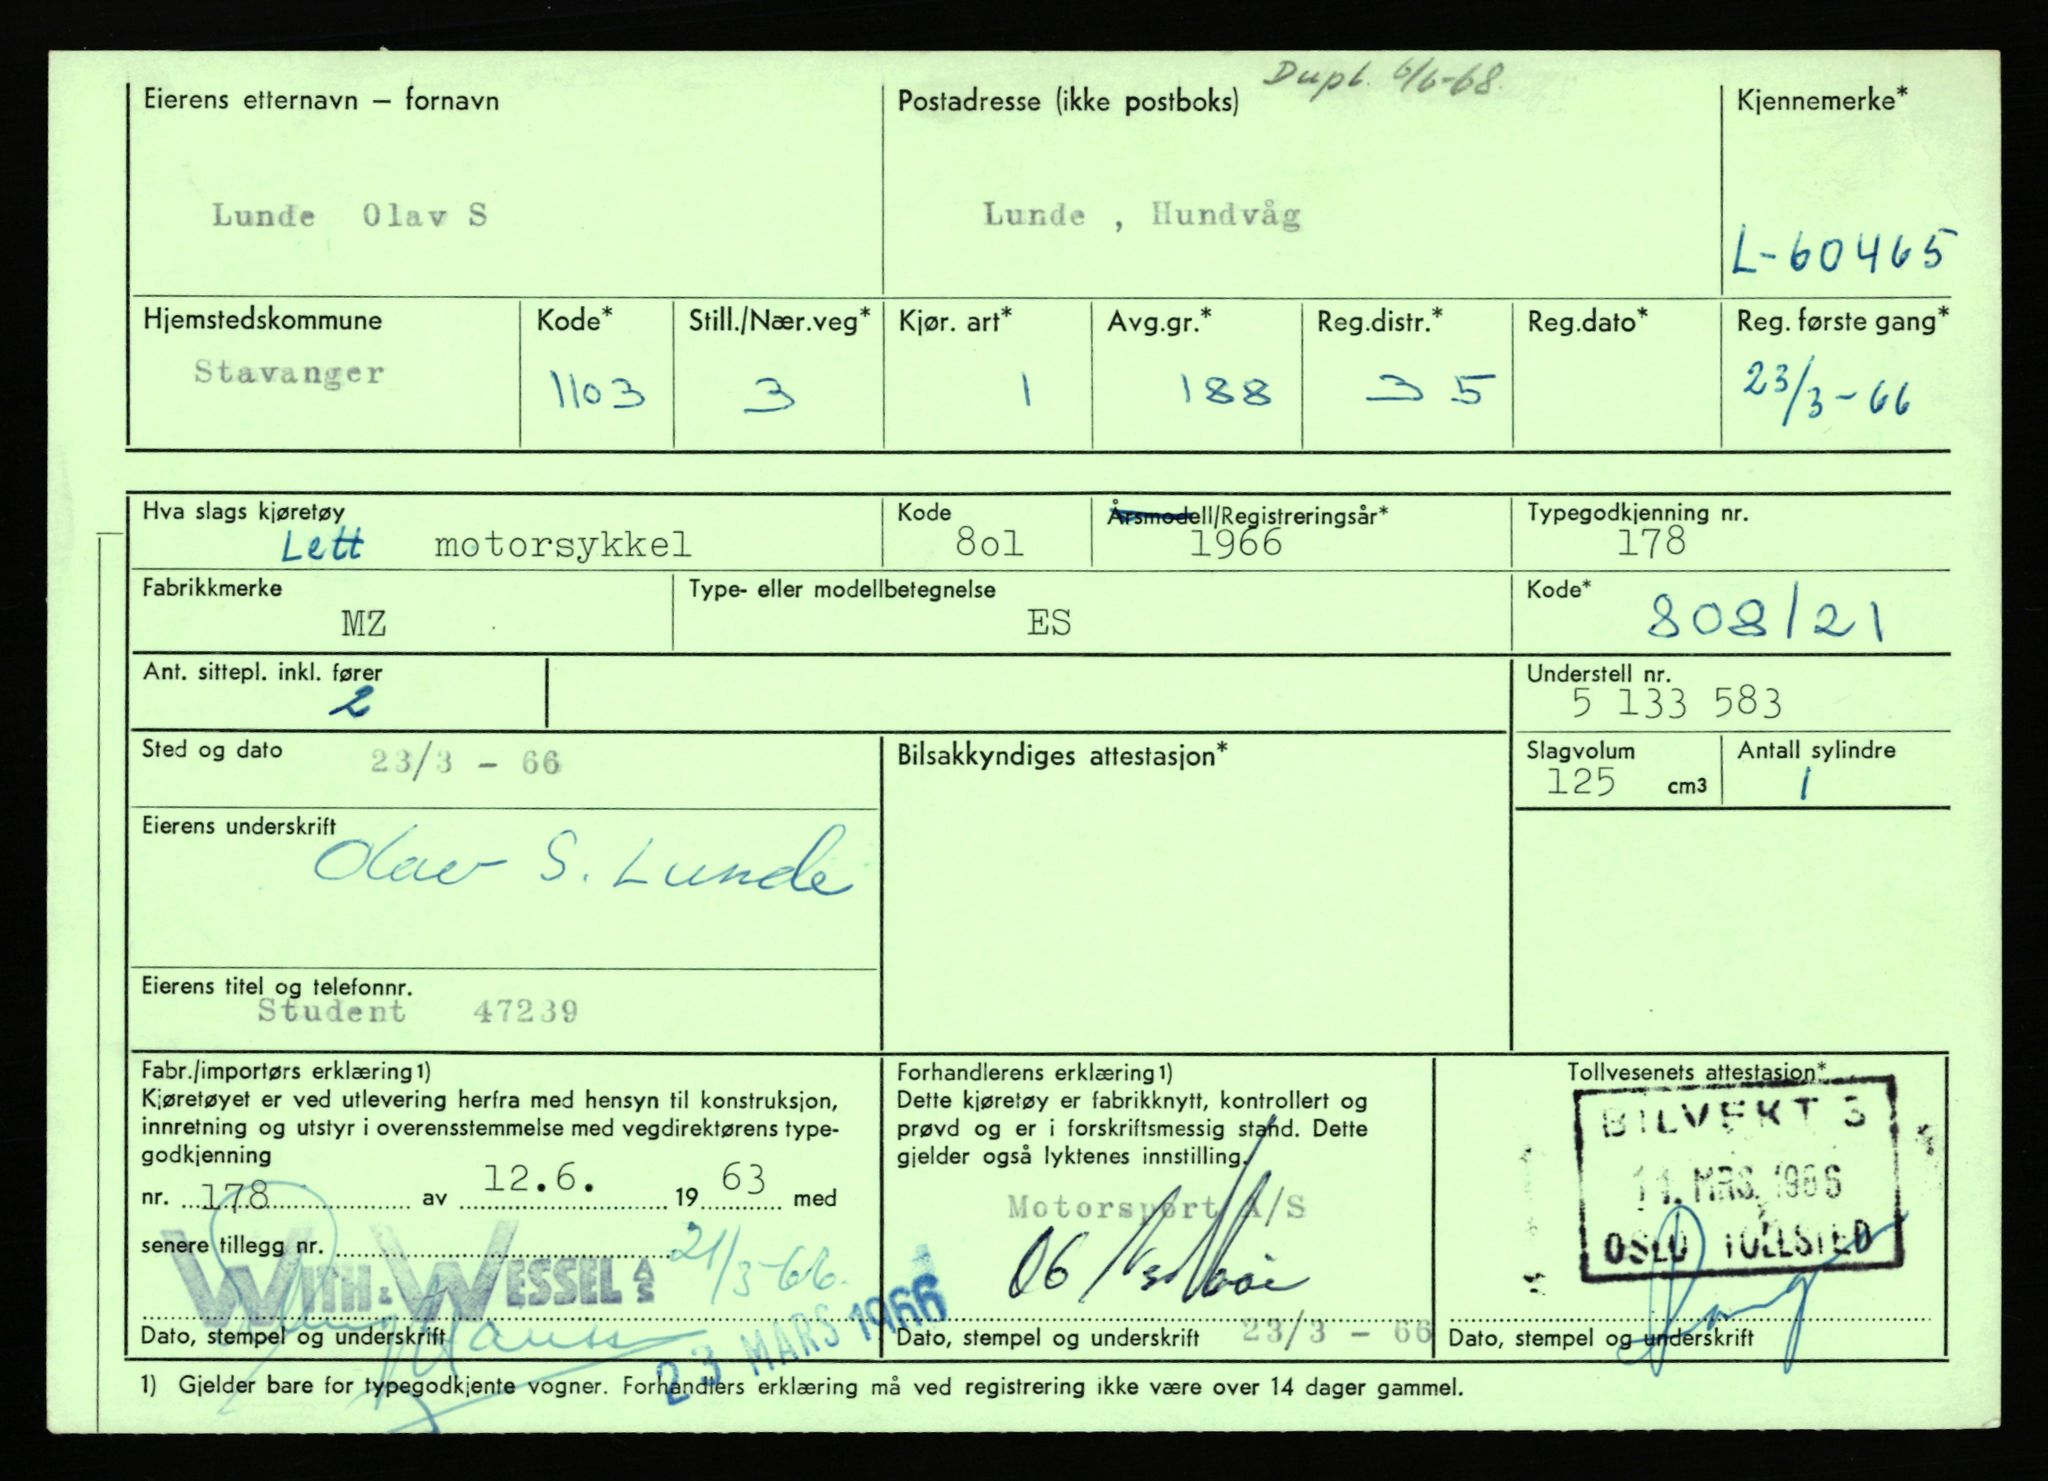 Dupl. 6/6-68.
Eierens etternavn – fornavn
Postadresse (ikke postboks)
Kjennemerke*
Lunde Olav S
Lunde , Hundvåg
L-60465
Hjemstedskommune
Kode*
Still./Nær.veg*
Kjør. art*
Avg.gr.*
Reg.distr.*
Reg.dato*
Reg. første gang*
Stavanger
1103
3
1
188
35
23/3-66
Hva slags kjøretøy
Kode
Årsmodell/Registreringsår*
Typegodkjenning nr.
Lett motorsykkel
8o1
1966
178
Fabrikkmerke
Type- eller modellbetegnelse
Kode*
MZ
ES
808/21
Ant. sittepl. inkl. fører
Understell nr.
2
5 133 583
Sted og dato
23/3 - 66
Bilsakkyndiges attestasjon*
Slagvolum
Antall sylindre
125 cm3
1
Eierens underskrift
Olav S. Lunde
Eierens titel og telefonnr.
Student 47239
Fabr./importørs erklæring 1)
Kjøretøyet er ved utlevering herfra med hensyn til konstruksjon,
innretning og utstyr i overensstemmelse med vegdirektørens type-
godkjenning
nr. 178 av 12.6. 19 63 med
senere tillegg nr.
21/3-66.
WITH & WESSEL A/S
Dato, stempel og underskrift
23 MARS 1966
Forhandlerens erklæring 1)
Dette kjøretøy er fabrikknytt, kontrollert og
prøvd og er i forskriftsmessig stand. Dette
gjelder også lyktenes innstilling.
Motorsport A/S
Dato, stempel og underskrift 23/3 - 66
Tollvesenets attestasjon*
BILVEKT 3
11. MRS. 1966
OSLO TOLLSTED
Dato, stempel og underskrift
1) Gjelder bare for typegodkjente vogner. Forhandlers erklæring må ved registrering ikke være over 14 dager gammel.